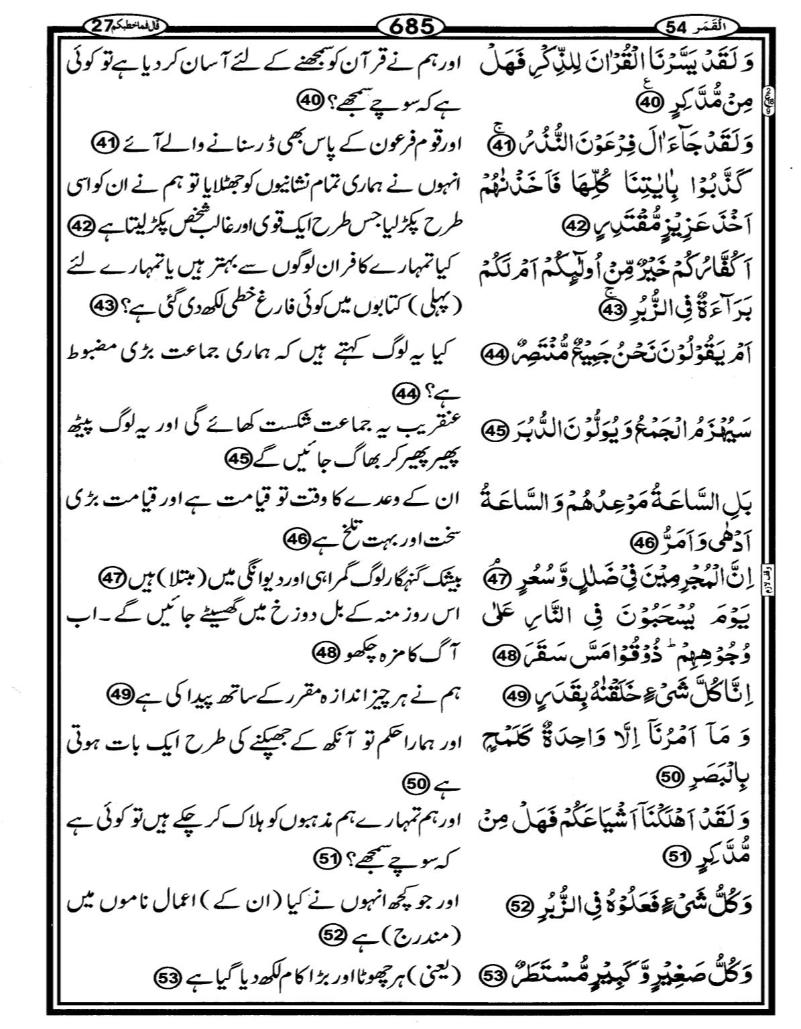 قال فما خطبکم 27
685
القمر 54
وَ لَقَدۡ یَسَّرۡنَا الۡقُرۡاٰنَ لِلذِّکۡرِ فَهَلۡ
مِنۡ مُّدَّکِرٍ ﴿40﴾
وَ لَقَدۡ جَآءَ اٰلَ فِرۡعَوۡنَ النُّذُرُ ﴿41﴾
کَذَّبُوۡا بِاٰیٰتِنَا کُلِّهَا فَاَخَذۡنٰهُمۡ
اَخۡذَ عَزِیۡزٍ مُّقۡتَدِرٍ ﴿42﴾
اَکُفَّارُکُمۡ خَیۡرٌ مِّنۡ اُولٰٓئِکُمۡ اَمۡ لَکُمۡ
بَرَآءَةٌ فِی الزُّبُرِ ﴿43﴾
اَمۡ یَقُوۡلُوۡنَ نَحۡنُ جَمِیۡعٌ مُّنۡتَصِرٌ ﴿44﴾
سَیُهۡزَمُ الۡجَمۡعُ وَ یُوَلُّوۡنَ الدُّبُرَ ﴿45﴾
بَلِ السَّاعَةُ مَوۡعِدُهُمۡ وَ السَّاعَةُ
اَدۡهٰی وَ اَمَرُّ ﴿46﴾
اِنَّ الۡمُجۡرِمِیۡنَ فِیۡ ضَلٰلٍ وَّ سُعُرٍ ﴿47﴾
یَوۡمَ یُسۡحَبُوۡنَ فِی النَّارِ عَلٰی
وُجُوۡهِهِمۡ ؕ ذُوۡقُوۡا مَسَّ سَقَرَ ﴿48﴾
اِنَّا کُلَّ شَیۡءٍ خَلَقۡنٰهُ بِقَدَرٍ ﴿49﴾
وَ مَاۤ اَمۡرُنَاۤ اِلَّا وَاحِدَةٌ کَلَمۡحٍۭ
بِالۡبَصَرِ ﴿50﴾
وَ لَقَدۡ اَهۡلَکۡنَاۤ اَشۡیَاعَکُمۡ فَهَلۡ مِنۡ
مُّدَّکِرٍ ﴿51﴾
وَ کُلُّ شَیۡءٍ فَعَلُوۡهُ فِی الزُّبُرِ ﴿52﴾
وَ کُلُّ صَغِیۡرٍ وَّ کَبِیۡرٍ مُّسۡتَطَرٌ ﴿53﴾
اور ہم نے قرآن کو سمجھنے کے لئے آسان کر دیا ہے تو کوئی
ہے کہ سوچے سمجھے؟ ﴿40﴾
اور قوم فرعون کے پاس بھی ڈر سنانے والے آئے ﴿41﴾
انہوں نے ہماری تمام نشانیوں کو جھٹلایا تو ہم نے ان کو اسی
طرح پکڑ لیا جس طرح ایک قوی اور غالب شخص پکڑ لیتا ہے ﴿42﴾
کیا تمہارے کافر ان لوگوں سے بہتر ہیں یا تمہارے لئے
(پہلی) کتابوں میں کوئی فارغ خطی لکھ دی گئی ہے؟ ﴿43﴾
کیا یہ لوگ کہتے ہیں کہ ہماری جماعت بڑی مضبوط
ہے؟ ﴿44﴾
عنقریب یہ جماعت شکست کھائے گی اور یہ لوگ پیٹھ
پھیر پھیر کر بھاگ جائیں گے ﴿45﴾
ان کے وعدے کا وقت تو قیامت ہے اور قیامت بڑی
سخت اور بہت تلخ ہے ﴿46﴾
بیشک گنہگار لوگ گمراہی اور دیوانگی میں (مبتلا) ہیں ﴿47﴾
اس روز منہ کے بل دوزخ میں گھسیٹے جائیں گے۔ اب
آگ کا مزہ چکھو ﴿48﴾
ہم نے ہر چیز اندازہ مقرر کے ساتھ پیدا کی ہے ﴿49﴾
اور ہمارا حکم تو آنکھ کے جھپکنے کی طرح ایک بات ہوتی
ہے ﴿50﴾
اور ہم تمہارے ہم مذہبوں کو ہلاک کر چکے ہیں تو کوئی ہے
کہ سوچے سمجھے؟ ﴿51﴾
اور جو کچھ انہوں نے کیا (ان کے) اعمال ناموں میں
(مندرج) ہے ﴿52﴾
(یعنی) ہر چھوٹا اور بڑا کام لکھ دیا گیا ہے ﴿53﴾
وقف لازم